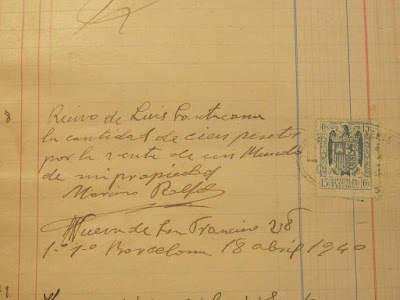 8
Recivo de Luis Cantacans
la cantidad de cien pesetas
por la venta de un Mundo
de mi propiedad
Mariano Rolfo
Nueva de San Francisco 28
1º 1º Barcelona 18 abril 1940
15 15